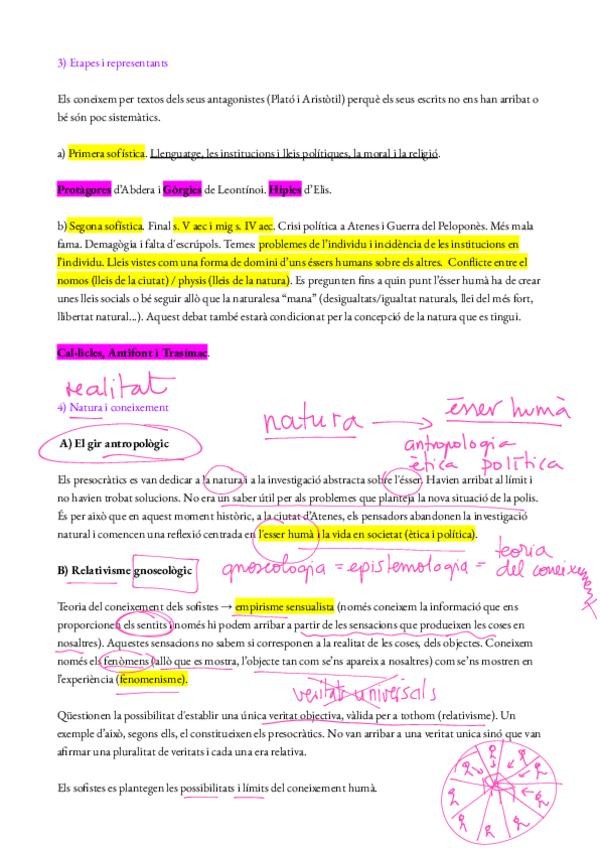 3) Etapes i representants
Els coneixem per textos dels seus antagonistes (Plató i Aristòtil) perquè els seus escrits no ens han arribat o
bé són poc sistemàtics.
a) Primera sofística. Llenguatge, les institucions i lleis polítiques, la moral i la religió.
Protàgores d’Abdera i Gòrgies de Leontínoi. Hípies d’Elis.
b) Segona sofística. Final s. V aec i mig s. IV aec. Crisi política a Atenes i Guerra del Peloponès. Més mala
fama. Demagògia i falta d'escrúpols. Temes: problemes de l’individu i incidència de les institucions en
l’individu. Lleis vistes com una forma de domini d’uns éssers humans sobre els altres. Conflicte entre el
nomos (lleis de la ciutat) / physis (lleis de la natura). Es pregunten fins a quin punt l’ésser humà ha de crear
unes lleis socials o bé seguir allò que la naturalesa “mana” (desigualtats/igualtat naturals, llei del més fort,
llibertat natural...). Aquest debat també estarà condicionat per la concepció de la natura que es tingui.
Cal·licles, Antifont i Trasímac.
realitat
4) Natura i coneixement
natura → ésser humà
antropologia
ètica política
A) El gir antropològic
Els presocràtics es van dedicar a la natura i a la investigació abstracta sobre l'ésser. Havien arribat al límit i
no havien trobat solucions. No era un saber útil per als problemes que planteja la nova situació de la polis.
És per això que en aquest moment històric, a la ciutat d’Atenes, els pensadors abandonen la investigació
natural i comencen una reflexió centrada en l’esser humà i la vida en societat (ètica i política).
B) Relativisme gnoseològic
gnoseologia = epistemologia = teoria
del coneixement
Teoria del coneixement dels sofistes → empirisme sensualista (només coneixem la informació que ens
proporcionen els sentits i només hi podem arribar a partir de les sensacions que produeixen les coses en
nosaltres). Aquestes sensacions no sabem si corresponen a la realitat de les coses, dels objectes. Coneixem
només els fenòmens (allò que es mostra, l’objecte tan com se’ns apareix a nosaltres) com se’ns mostren en
l’experiència (fenomenisme).
veritats universals
Qüestionen la possibilitat d'establir una única veritat objectiva, vàlida per a tothom (relativisme). Un
exemple d’això, segons ells, el constitueixen els presocràtics. No van arribar a una veritat unica sinó que van
afirmar una pluralitat de veritats i cada una era relativa.
Els sofistes es plantegen les possibilitats i límits del coneixement humà.